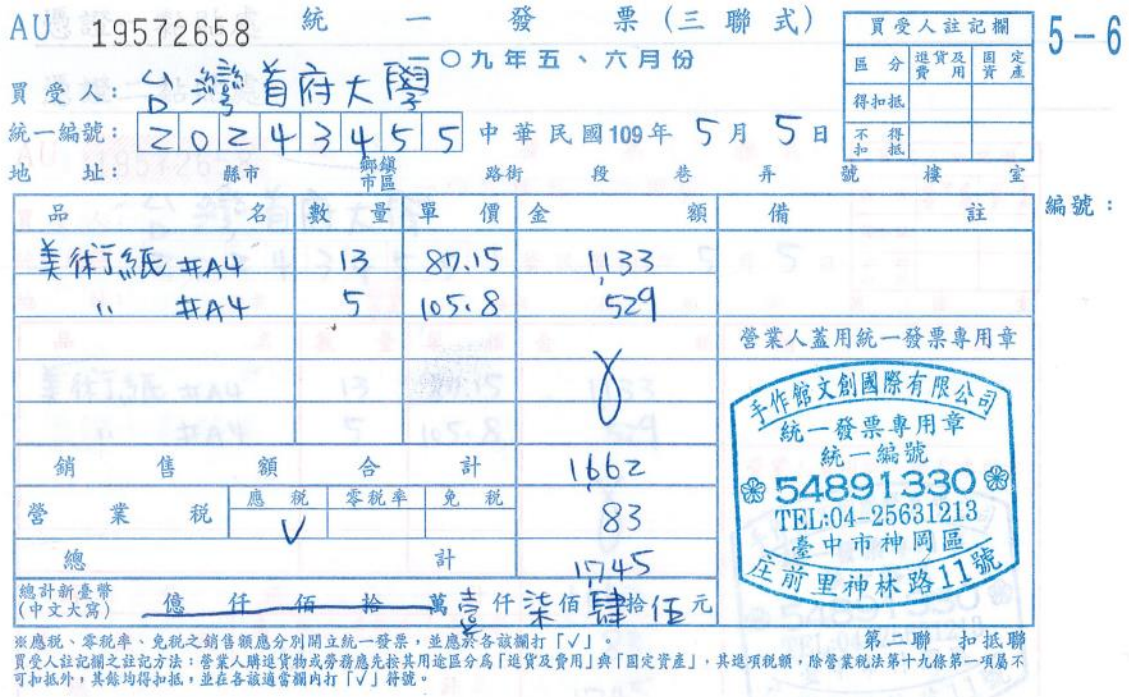 AU 19572658
統一發票(三聯式)
一〇九年五、六月份
5-6
買受人註記欄
區分 進貨及費用 固定資產
得扣抵
不得扣抵
買受人: 台灣首府大學
統一編號: 20243455 中華民國109年5月5日
地址: 縣市 鄉鎮市區 路街 段 巷 弄 號 樓 室
編號:
品名 數量 單價 金額 備註
美術紙 #A4 13 87.15 1,133
〃 #A4 5 105.8 529
營業人蓋用統一發票專用章
銷售額合計 1,662
營業稅 應稅 V 零稅率 免稅 83
總計 1,745
總計新臺幣(中文大寫) 億仟佰拾萬壹仟柒佰肆拾伍元
手作館文創國際有限公司
統一發票專用章
統一編號
54891330
TEL:04-25631213
臺中市神岡區
庄前里神林路11號
第二聯 扣抵聯
※應稅、零稅率、免稅之銷售額應分別開立統一發票,並應於各該欄打「√」
買受人註記欄之註記方法:營業人購進貨物或勞務應先按其用途區分為「進貨及費用」與「固定資產」,其進項稅額,除營業稅法第十九條第一項屬不
可扣抵外,其餘均得扣抵,並在各該適當欄內打「√」符號。